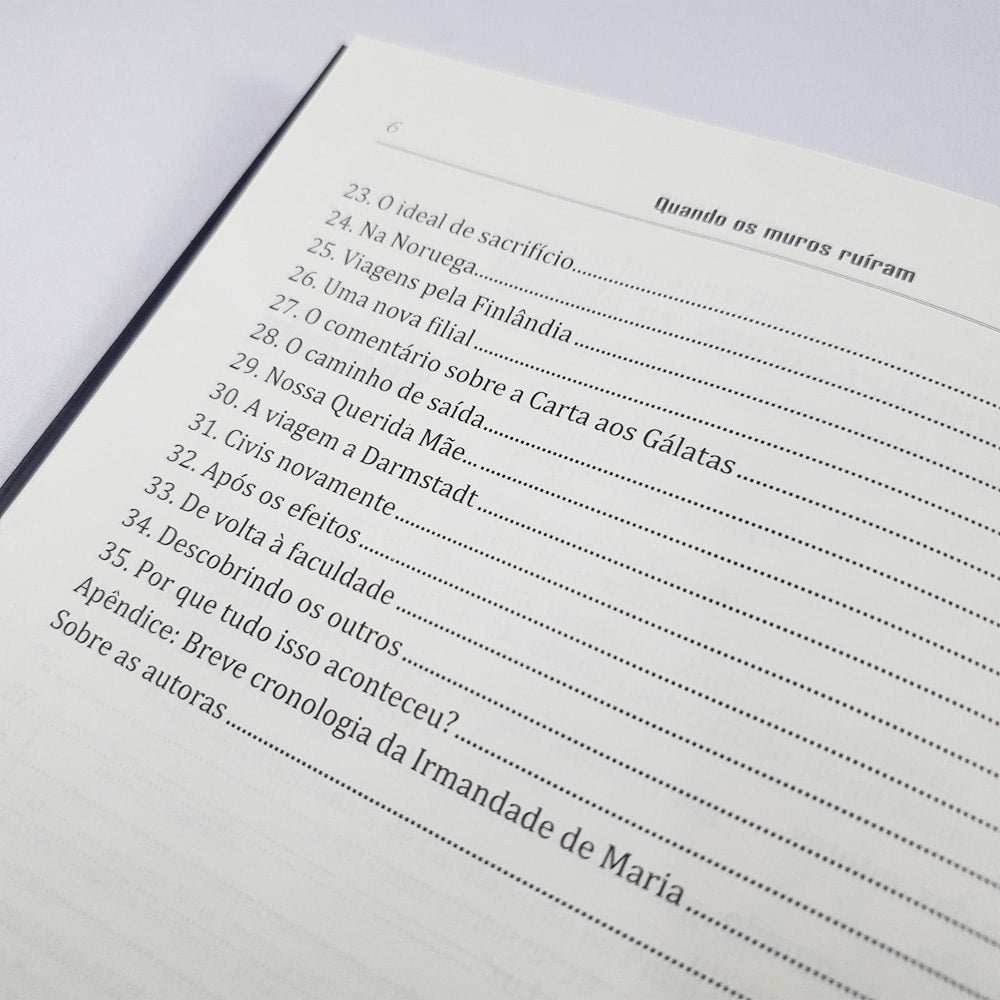 6
Quando os muros ruíram
23. O ideal de sacrifício
24. Na Noruega
25. Viagens pela Finlândia
26. Uma nova filial
27. O comentário sobre a Carta aos Gálatas
28. O caminho de saída
29. Nossa Querida Mãe
30. A viagem a Darmstadt
31. Civis novamente
32. Após os efeitos
33. De volta à faculdade
34. Descobrindo os outros
35. Por que tudo isso aconteceu?
Apêndice: Breve cronologia da Irmandade de Maria
Sobre as autoras